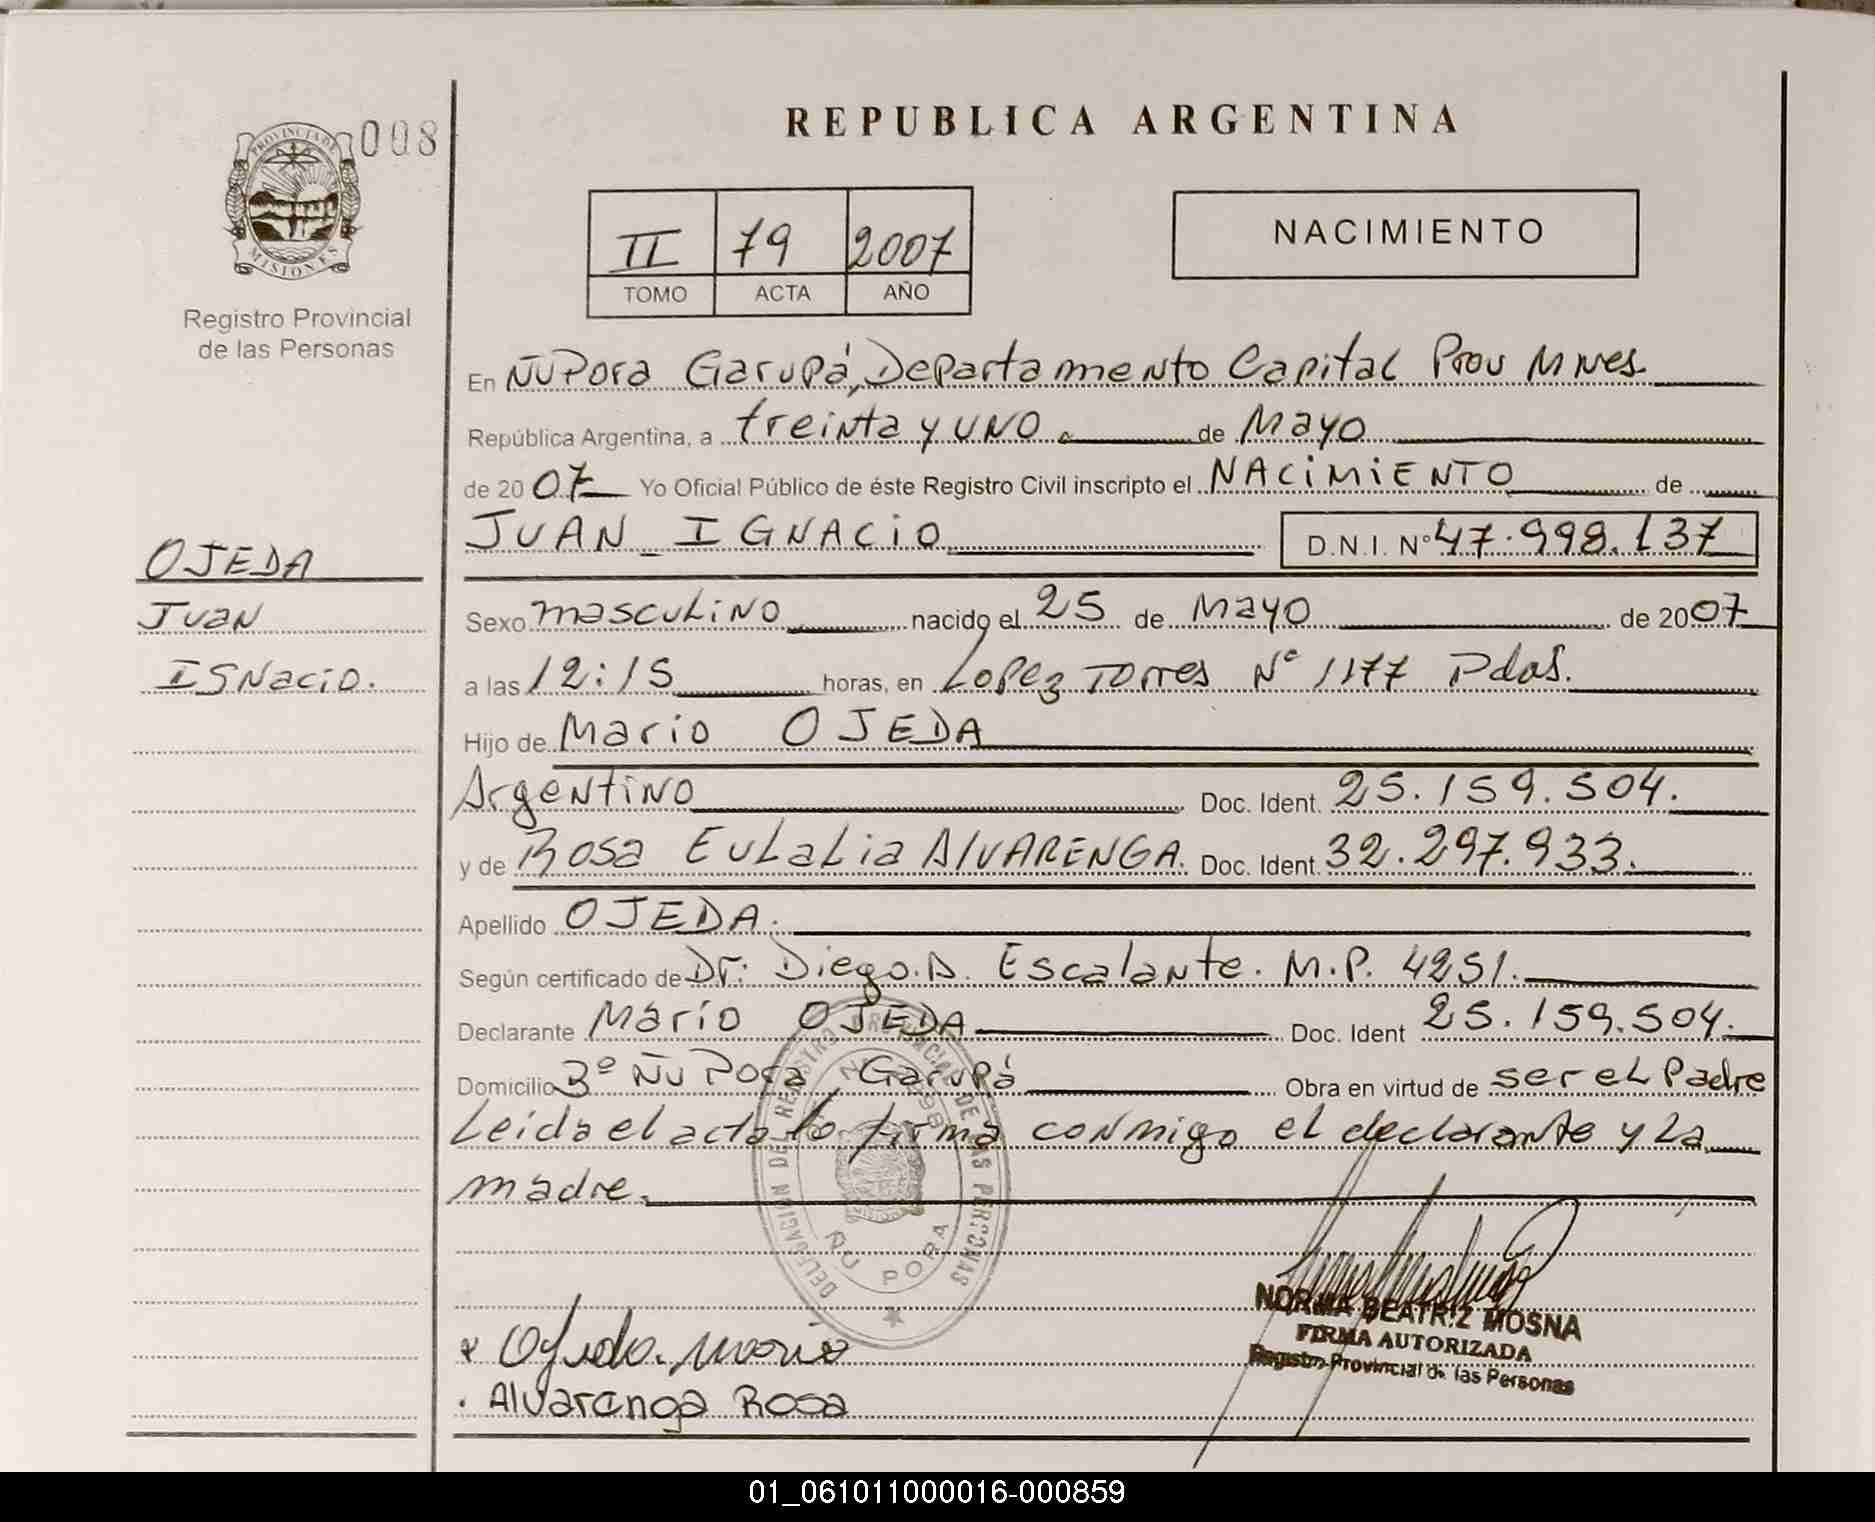 REPUBLICA ARGENTINA
008
PROVINCIA DE
MISIONES
Registro Provincial
de las Personas
II 79 2007
TOMO ACTA AÑO
NACIMIENTO
En ÑU Pora Garupá, Departamento Capital Prov Mnes.
República Argentina, a treinta y uno de Mayo
de 2007 Yo Oficial Público de éste Registro Civil inscripto el NACIMIENTO de
JUAN IGNACIO D.N.I. Nº 47.998.137
OJEDA
Juan
Ignacio.
Sexo masculino nacido el 25 de Mayo de 2007
a las 12:15 horas, en Lopez Torres Nº 1177 Pdas.
Hijo de Mario OJEDA
Argentino Doc. Ident. 25.159.504.
y de Rosa Eulalia ALVARENGA. Doc. Ident. 32.297.933.
Apellido OJEDA.
Según certificado de Dr: Diego.A. Escalante. M.P. 4251.
Declarante Mario OJEDA Doc. Ident 25.159.504.
Domicilio Bº Ñu Pora Garupá Obra en virtud de ser el Padre
Leida el acta lo firma conmigo el declarante y la
madre.
DELEGACION DEL REGISTRO PROVINCIAL DE LAS PERSONAS
ÑU PORA
NORMA BEATRIZ MOSNA
FIRMA AUTORIZADA
Registro Provincial de las Personas
Ojeda Mario
Alvarenga Rosa
01_061011000016-000859